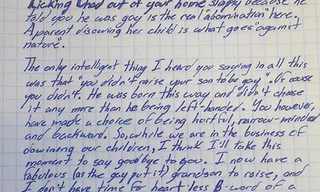 Kicking Chad out of your home simply because he
told you he was gay is the real "abomination" here.
A parent disowning her child is what goes "against
nature".
The only intelligent thing I heard you saying in all this
was that "you didn't raise your son to be gay". Of course
you didn't. He was born this way and didn't choose
it any more than he being left-handed. You however,
have made a choice of being hurtful, narrow-minded
and backward. So, while we are in the business of
disowning our children, I think I'll take this
moment to say goodbye to you. I now have a
fabulous (as the gay put it) grandson to raise, and
I don't have time for heart-less B-word of a